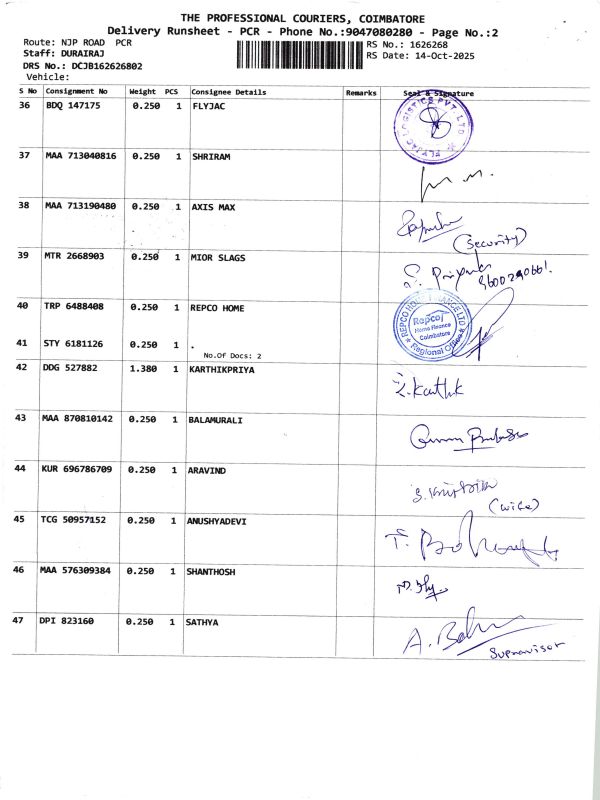 THE PROFESSIONAL COURIERS, COIMBATORE
Delivery Runsheet - PCR - Phone No.:9047080280 - Page No.:2
Route: NJP ROAD PCR
RS No.: 1626268
Staff: DURAIRAJ
RS Date: 14-Oct-2025
DRS No.: DCJB162626802
Vehicle:
S No Consignment No Weight PCS Consignee Details Remarks Seal & Signature
36 BDQ 147175 0.250 1 FLYJAC
FLYJAC LOGISTICS PVT. LTD
37 MAA 713040816 0.250 1 SHRIRAM
38 MAA 713190480 0.250 1 AXIS MAX
(Security)
39 MTR 2668903 0.250 1 MIOR SLAGS
S. Priyanka
9600290661
40 TRP 6488408 0.250 1 REPCO HOME
REPCO HOME FINANCE LTD
Repco
Home Finance
Coimbatore
Regional Office
41 STY 6181126 0.250 1 .
No.Of Docs: 2
42 DDG 527882 1.380 1 KARTHIKPRIYA
Karthik
43 MAA 870810142 0.250 1 BALAMURALI
44 KUR 696786709 0.250 1 ARAVIND
(wife)
45 TCG 50957152 0.250 1 ANUSHYADEVI
46 MAA 576309384 0.250 1 SHANTHOSH
47 DPI 823160 0.250 1 SATHYA
Supravisor